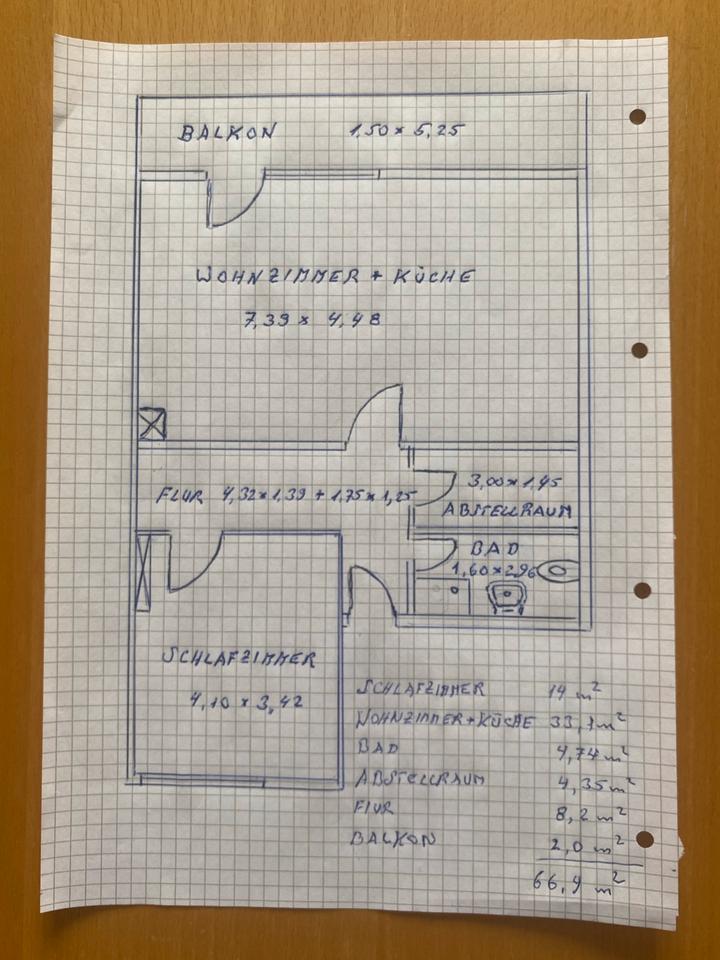 BALKON 1,50 x 5,25
WOHNZIMMER + KÜCHE
7,39 x 4,48
FLUR 4,32 x 1,39 + 1,75 x 1,25
3,00 x 1,45
ABSTELLRAUM
BAD
1,60 x 2,96
SCHLAFZIMMER
4,10 x 3,42
SCHLAFZIMMER 14 m²
WOHNZIMMER + KÜCHE 33,1 m²
BAD 4,74 m²
ABSTELLRAUM 4,35 m²
FLUR 8,2 m²
BALKON 2,0 m²
66,4 m²